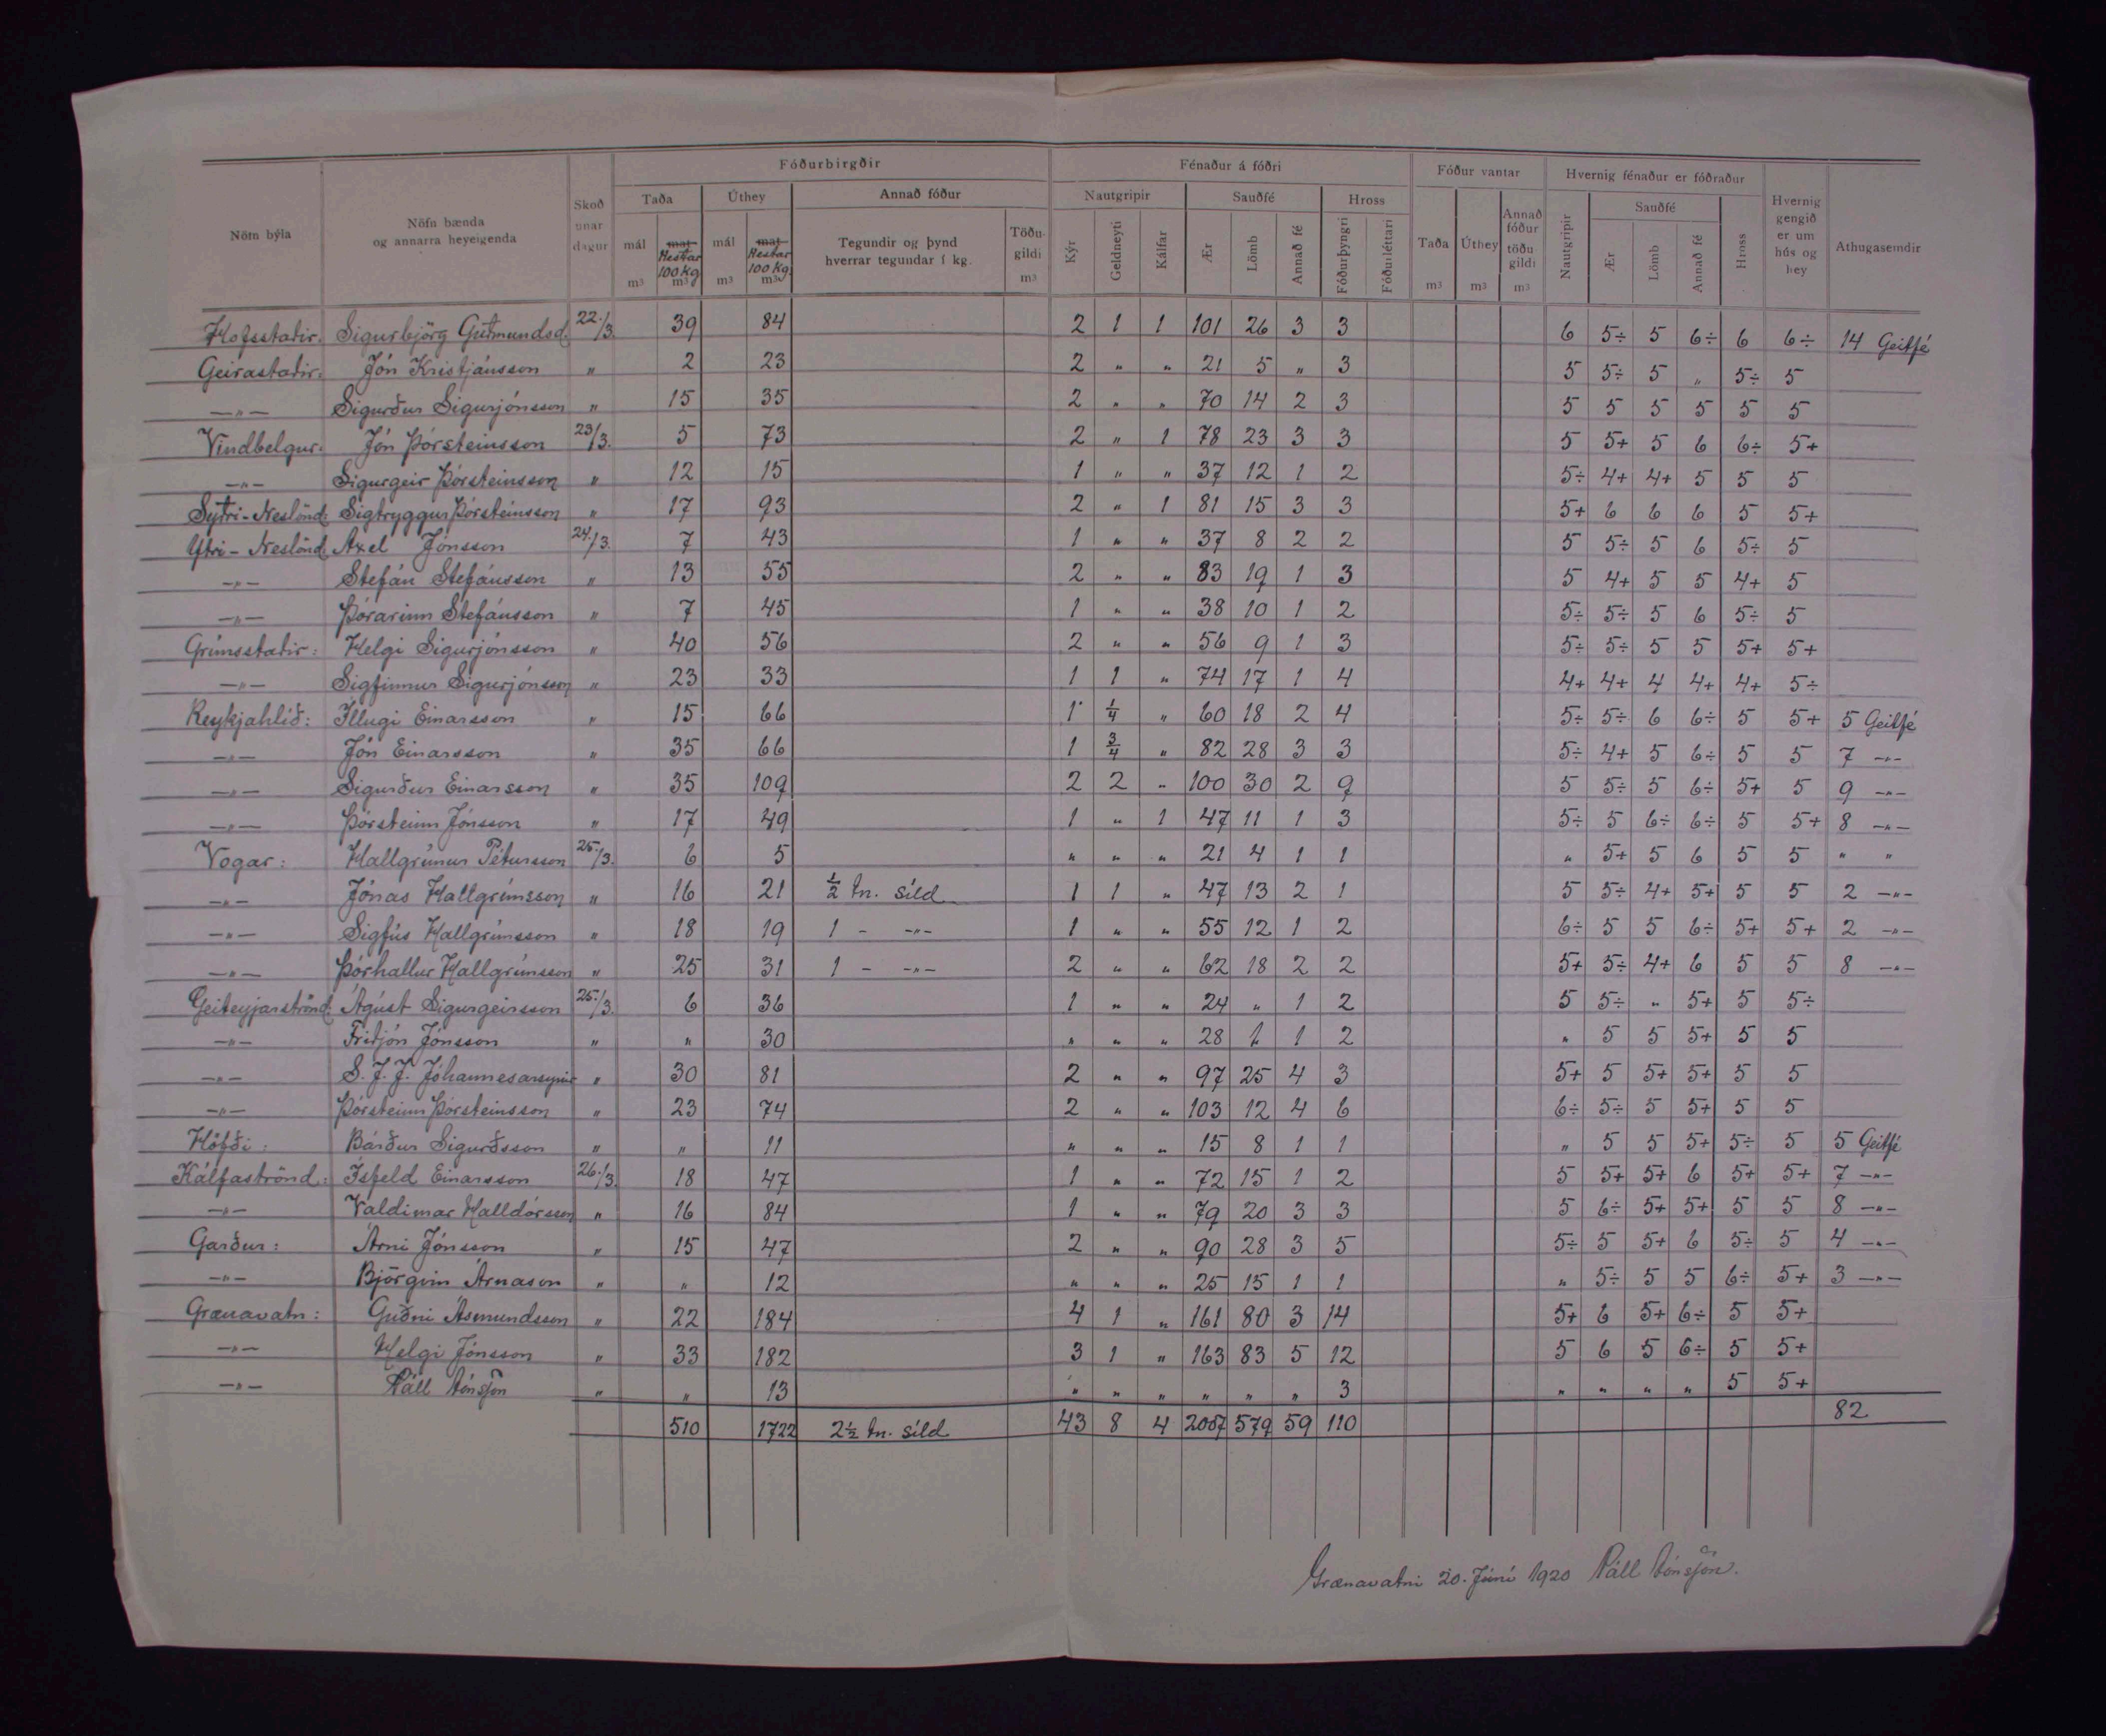 Fóðurbirgðir Fénaður á fóðri Fóður vantar Hvernig fénaður er fóðraður
Nöfn býla Nöfn bænda og annarra heyeigenda Skoð unar dagur Taða Úthey Annað fóður Nautgripir Sauðfé Hross Taða Úthey Annað fóður töðu gildi Nautgripir Sauðfé Hross Hvernig gengið er um hús og hey Athugasemdir
mál Hestar 100 kg mál Hestar 100 kg. Tegundir og þynd hverrar tegundar í kg. Töðu-gildi Kýr Geldneyti Kálfar Ær Lömb Annað fé Fóðurþyngri Fóðurléttari Ær Lömb Annað fé
m³ m³ m³ m³ m³ m³ m³ m³
Hofsstaðir: Sigurbjörg Guðmundsd. 22./3. 39 84 2 1 1 101 26 3 3 6 5÷ 5 6÷ 6 6÷ 14 Geitfé
Geirastaðir: Jón Kristjánsson " 2 23 2 " " 21 5 " 3 5 5÷ 5 " 5÷ 5
—"— Sigurður Sigurjónsson " 15 35 2 " " 70 14 2 3 5 5 5 5 5 5
Vindbelgur: Jón Þórsteinsson 23/3. 5 73 2 " 1 78 23 3 3 5 5+ 5 6 6÷ 5+
—"— Sigurgeir Þórsteinsson " 12 15 1 " " 37 12 1 2 5÷ 4+ 4+ 5 5 5
Syðri-Neslönd: Sigtryggur Þórsteinsson " 17 93 2 " 1 81 15 3 3 5+ 6 6 6 5 5+
Ytri-Neslönd Axel Jónsson 24./3. 7 43 1 " " 37 8 2 2 5 5÷ 5 6 5÷ 5
—"— Stefán Stefánsson " 13 55 2 " " 83 19 1 3 5 4+ 5 5 4+ 5
—"— Þórarinn Stefánsson " 7 45 1 " " 38 10 1 2 5÷ 5÷ 5 6 5÷ 5
Grímsstaðir: Helgi Sigurjónsson " 40 56 2 " " 56 9 1 3 5÷ 5÷ 5 5 5+ 5+
—"— Sigfinnur Sigurjónsson " 23 33 1 1 " 74 17 1 4 4+ 4+ 4 4+ 4+ 5÷
Reykjahlíð: Illugi Einarsson " 15 66 1 1/4 " 60 18 2 4 5÷ 5÷ 6 6÷ 5 5+ 5 Geitfé
—"— Jón Einarsson " 35 66 1 3/4 " 82 28 3 3 5÷ 4+ 5 6÷ 5 5 7 —"—
—"— Sigurður Einarsson " 35 109 2 2 " 100 30 2 9 5 5÷ 5 6÷ 5+ 5 9 —"—
—"— Þórsteinn Jónsson " 17 49 1 " 1 47 11 1 3 5÷ 5 6÷ 6÷ 5 5+ 8 —"—
Vogar: Hallgrímur Pétursson 25./3. 6 5 " " " 21 4 1 1 " 5+ 5 6 5 5 " "
—"— Jónas Hallgrímsson " 16 21 1/2 tn. síld 1 1 " 47 13 2 1 5 5÷ 4+ 5+ 5 5 2 —"—
—"— Sigfús Hallgrímsson " 18 19 1 - —"— 1 " " 55 12 1 2 6÷ 5 5 6÷ 5+ 5+ 2 —"—
—"— Þórhallur Hallgrímsson " 25 31 1 - —"— 2 " " 62 18 2 2 5+ 5÷ 4+ 6 5 5 8 —"—
Geiteyjarströnd: Ágúst Sigurgeirsson 25./3. 6 36 1 " " 24 " 1 2 5 5÷ " 5+ 5 5÷
—"— Friðjón Jónsson " " 30 " " " 28 1 2 " 5 5 5+ 5 5
—"— S. J. J. Jóhannesarsynir " 30 81 2 " " 97 25 4 3 5+ 5 5+ 5+ 5 5
—"— Þórsteinn Þórsteinsson " 23 74 2 " " 103 12 4 6 6÷ 5÷ 5 5+ 5 5
Höfði: Bárður Sigurðsson " " 11 " " " 15 8 1 1 " 5 5 5+ 5÷ 5 5 Geitfé
Kálfaströnd: Ísfeld Einarsson 26./3. 18 47 1 " " 72 15 1 2 5 5+ 5+ 6 5+ 5+ 7 —"—
—"— Valdimar Halldórsson " 16 84 1 " " 79 20 3 3 5 6÷ 5+ 5+ 5 5 8 —"—
Garður: Árni Jónsson " 15 47 2 " " 90 28 3 5 5÷ 5 5+ 6 5÷ 5 4 —"—
—"— Björgvin Árnason " " 12 " " " 25 15 1 1 " 5÷ 5 5 6÷ 5+ 3 —"—
Grænavatn: Guðni Ásmundsson " 22 184 4 1 " 161 80 3 14 5+ 6 5+ 6÷ 5 5+
—"— Helgi Jónsson " 33 182 3 1 " 163 83 5 12 5 6 5 6÷ 5 5+
—"— Páll Jónsson " " 13 " " " " " " 3 " " " " 5 5+
510 1722 2½ tn. síld 43 8 4 2057 579 59 110 82
Grænavatni 20. Júní 1920 Páll Jónsson.